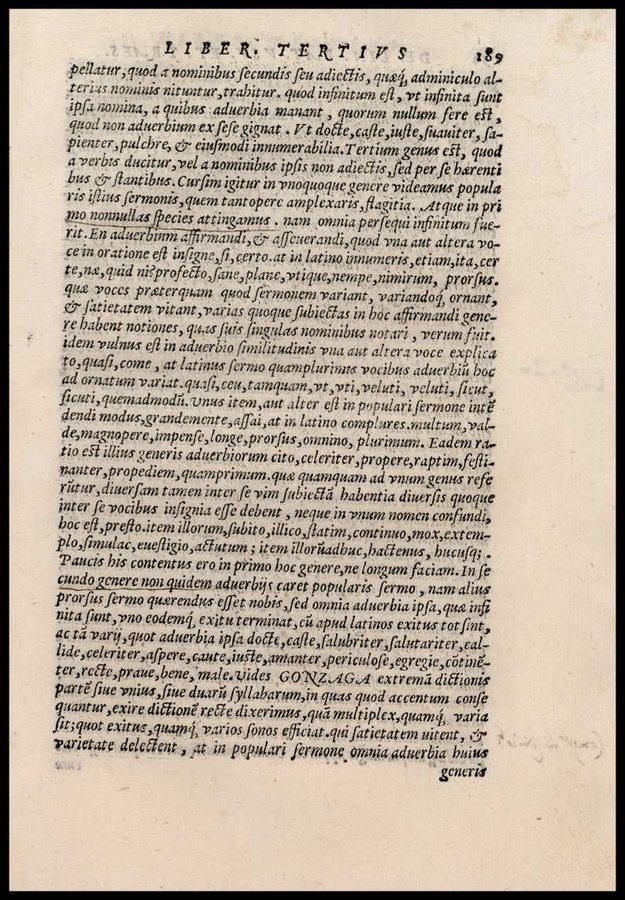 LIBER. TERTIVS 189
pellatur, quod a nominibus secundis seu adiectis, quæq; adminiculo al-
terius nominis nituntur, trahitur. quod infinitum est, vt infinita sunt
ipsa nomina, a quibus aduerbia manant, quorum nullum fere est,
quod non aduerbium ex sese gignat. Vt docte, caste, iuste, suauiter, sa-
pienter, pulchre, & eiusmodi innumerabilia. Tertium genus est, quod
a verbis ducitur, vel a nominibus ipsis non adiectis, sed per se hærenti
bus & stantibus. Cursim igitur in vnoquoque genere videamus popula
ris istius sermonis, quem tantopere amplexaris, flagitia. Atque in pri
mo nonnullas species attingamus. nam omnia persequi infinitum fue-
rit. En aduerbium affirmandi, & asseuerandi, quod vna aut altera vo-
ce in oratione est insigne, si, certo. at in latino innumeris, etiam, ita, cer
te, næ, quid nisprofecto, sane, plane, vtique, nempe, nimirum, prorsus.
quæ voces præterquam quod sermonem variant, variandoq; ornant,
& satietatem vitant, varias quoque subiectas in hoc affirmandi gene-
re habent notiones, quas suis singulas nominibus notari, verum fuit.
idem vulnus est in aduerbio similitudinis vna aut altera voce explica
to, quasi, come, at latinus sermo quamplurimis vocibus aduerbiū hoc
ad ornatum variat. quasi, ceu, tamquam, vt, vti, veluti, veluti, sicut,
sicuti, quemadmodū. Vnus item, aut alter est in populari sermone intē
dendi modus, grandemente, assai, at in latino complures. multum, val-
de, magnopere, impense, longe, prorsus, omnino, plurimum. Eadem ra-
tio est illius generis aduerbiorum cito, celeriter, propere, raptim, festi-
nanter, propediem, quamprimum. quæ quamquam ad vnum genus refe
rūtur, diuersam tamen inter se vim subiectā habentia diuersis quoque
inter se vocibus insignia esse debent, neque in vnum nomen confundi,
hoc est, presto. item illorum, subito, illico, statim, continuo, mox, extem-
plo, simulac, euestigio, actutum; item illorūadhuc, hactenus, hucusq;.
Paucis his contentus ero in primo hoc genere, ne longum faciam. In se
cundo genere non quidem aduerbijs caret popularis sermo, nam alius
prorsus sermo quærendus esset nobis, sed omnia aduerbia ipsa, quæ infi
nita sunt, vno eodemq; exitu terminat, cū apud latinos exitus tot sint,
ac tā varij, quot aduerbia ipsa docte, caste, salubriter, salutariter, cal-
lide, celeriter, aspere, caute, iuste, amanter, periculose, egregie, cōtinē-
ter, recte, praue, bene, male. Vides GONZAGA extremā dictionis
partē siue vnius, siue duarū syllabarum, in quas quod accentum conse
quantur, exire dictionē recte dixerimus, quā multiplex, quamq; varia
sit; quot exitus, quamq; varios sonos efficiat. qui satietatem vitent, &
varietate delectent, at in populari sermone omnia aduerbia huius
generis